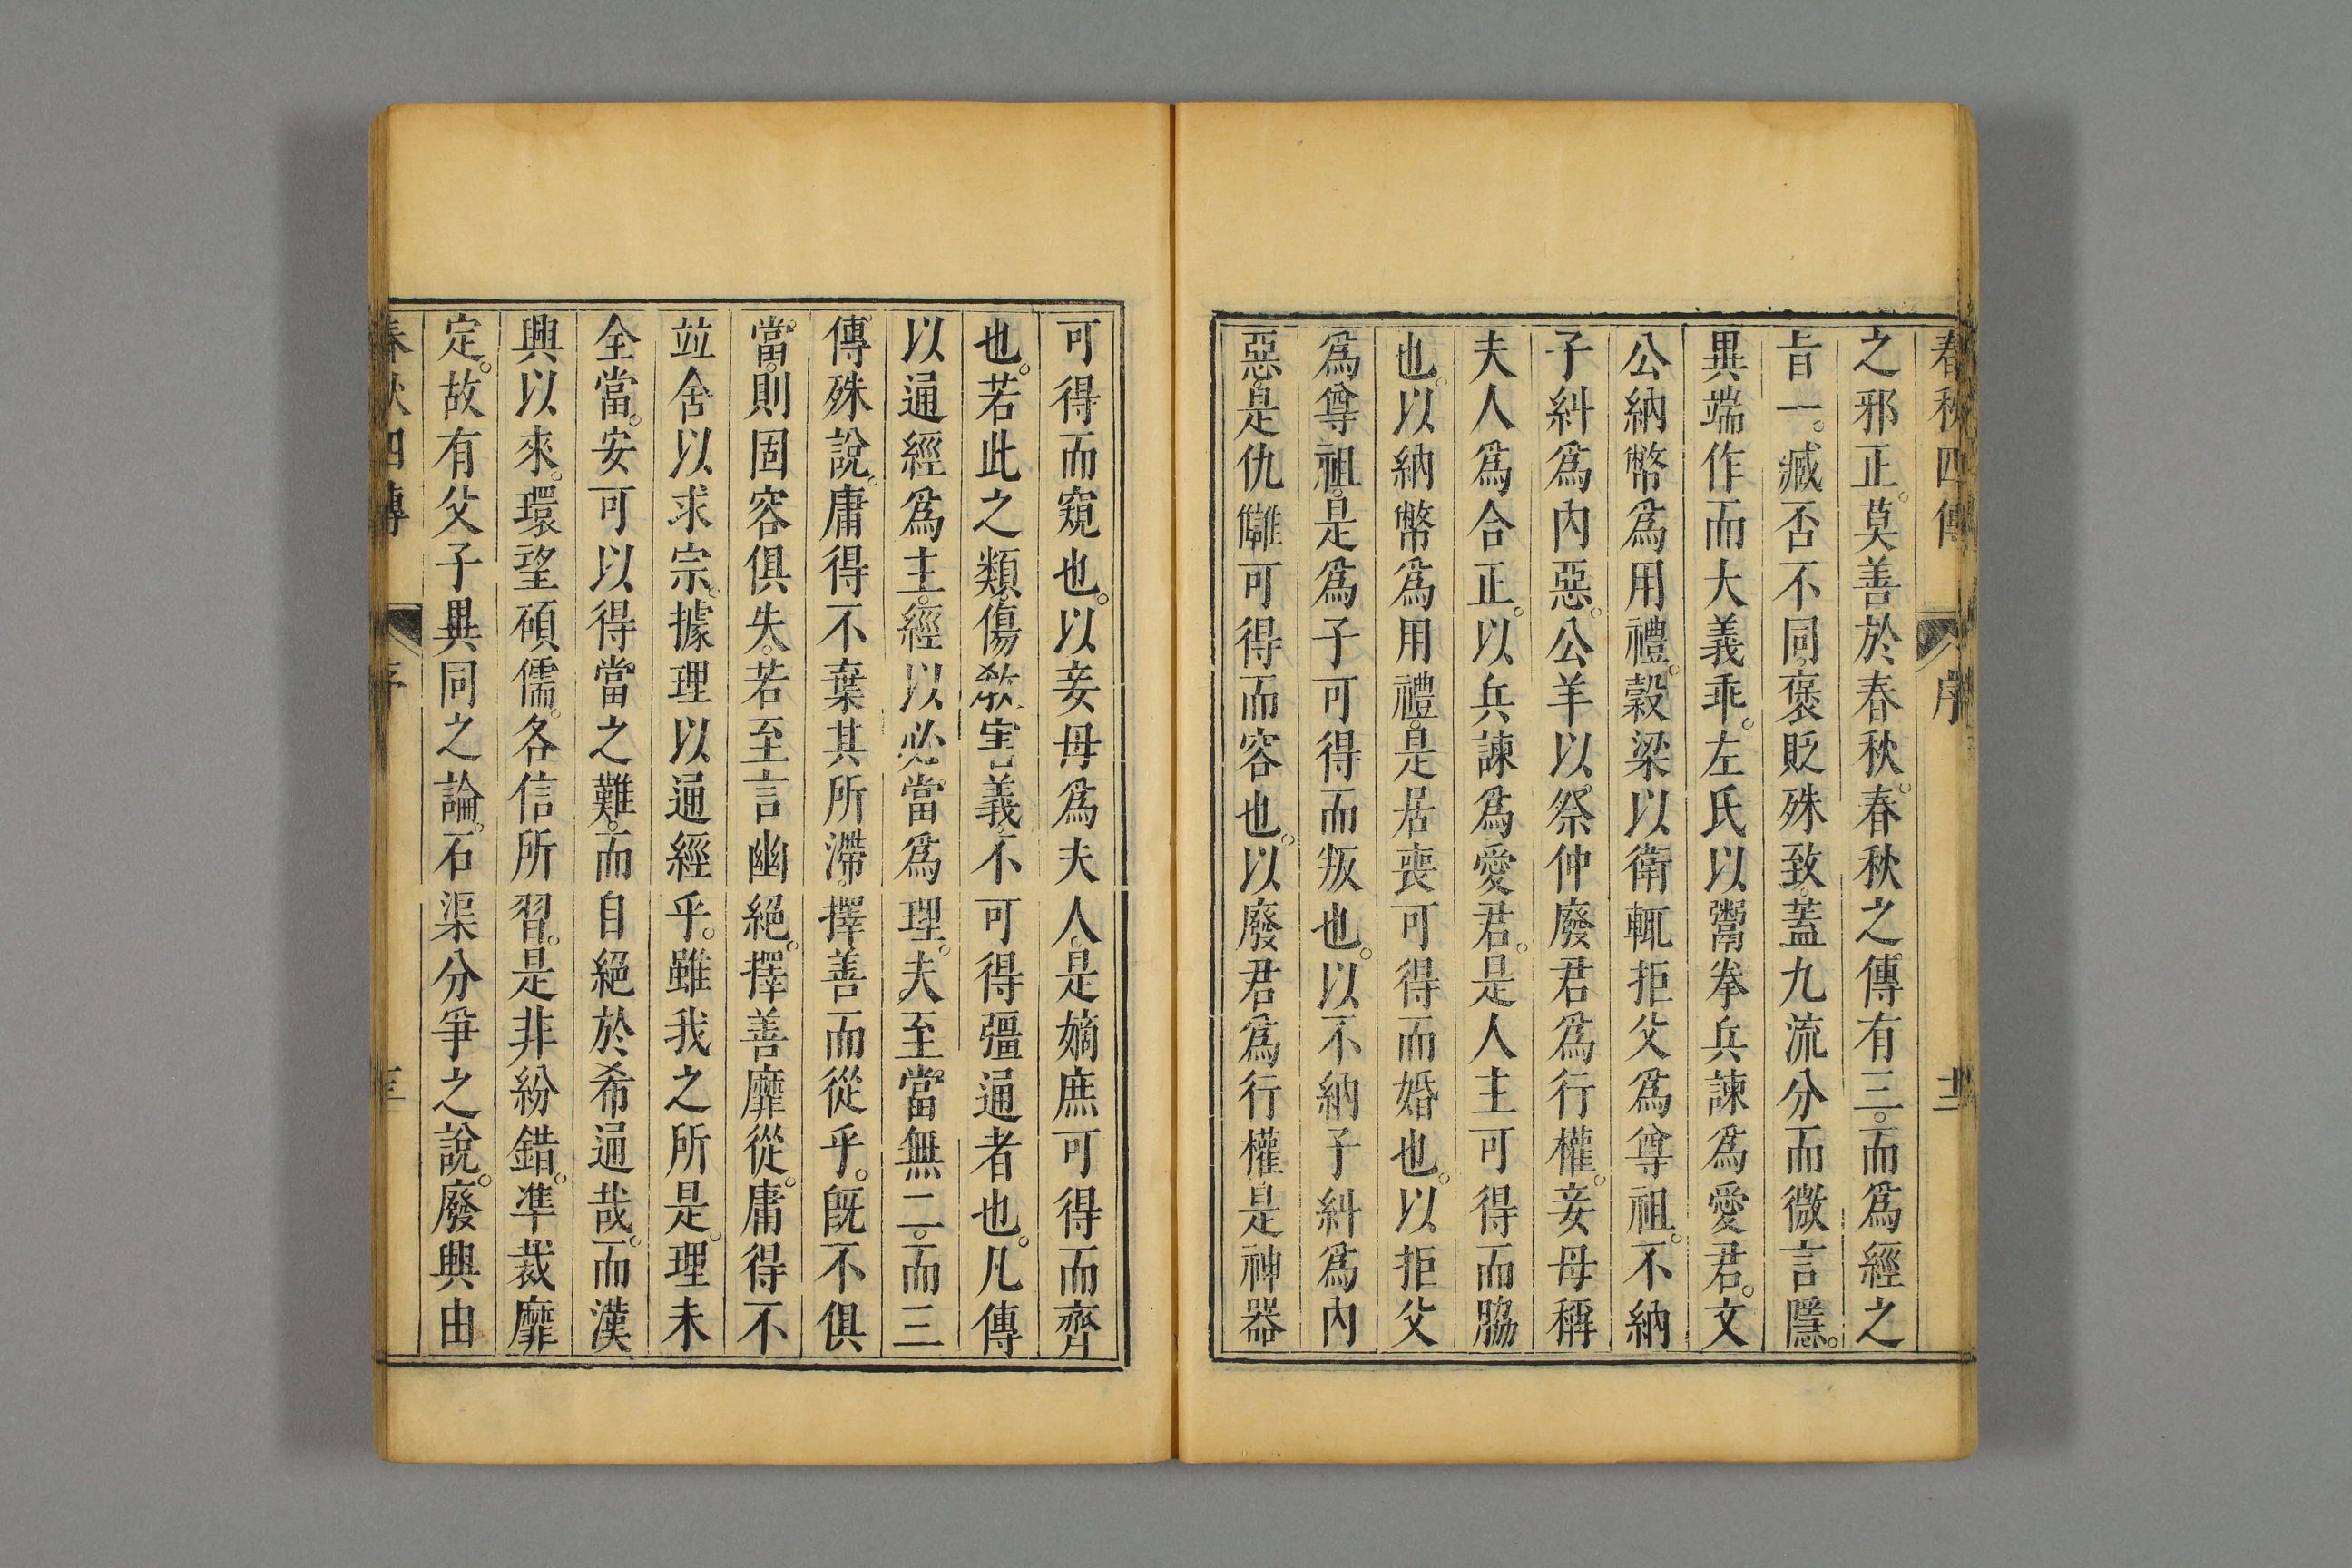 春秋四傳 序
之邪正。莫善於春秋。春秋之傳有三。而爲經之
旨一。臧否不同。褒貶殊致。蓋九流分而微言隱。
異端作而大義乖。左氏以鬻拳兵諫爲愛君。文
公納幣爲用禮。穀梁以衛輒拒父爲尊祖。不納
子糾爲內惡。公羊以祭仲廢君爲行權。妾母稱
夫人爲合正。以兵諫爲愛君。是人主可得而脇
也。以納幣爲用禮。是居喪可得而婚也。以拒父
爲尊祖。是爲子可得而叛也。以不納子糾爲內
惡。是仇讎可得而容也。以廢君爲行權。是神器
可得而窺也。以妾母爲夫人。是嫡庶可得而齊
也。若此之類。傷敎害義。不可得彊通者也。凡傳
以通經爲主。經以必當爲理。夫至當無二。而三
傳殊說。庸得不棄其所滯。擇善而從乎。旣不俱
當。則固容俱失。若至言幽絕。擇善靡從。庸得不
竝舍以求宗。據理以通經乎。雖我之所是。理未
全當。安可以得當之難。而自絕於希通哉。而漢
興以來。瓌望碩儒。各信所習。是非紛錯。凖裁靡
定。故有父子異同之論。石渠分爭之說。廢興由
春秋四傳 序